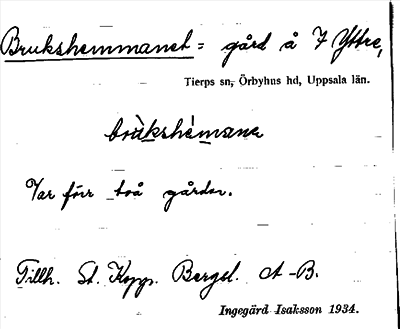 Brukshemmanet = gård å 7 Yttre,
Tierps sn, Örbyhus hd, Uppsala län.
brùkshémane
Var förr två gårdar.
Tillh. St. Kopp. Bergsl. A-B.
Ingegärd Isaksson 1934.